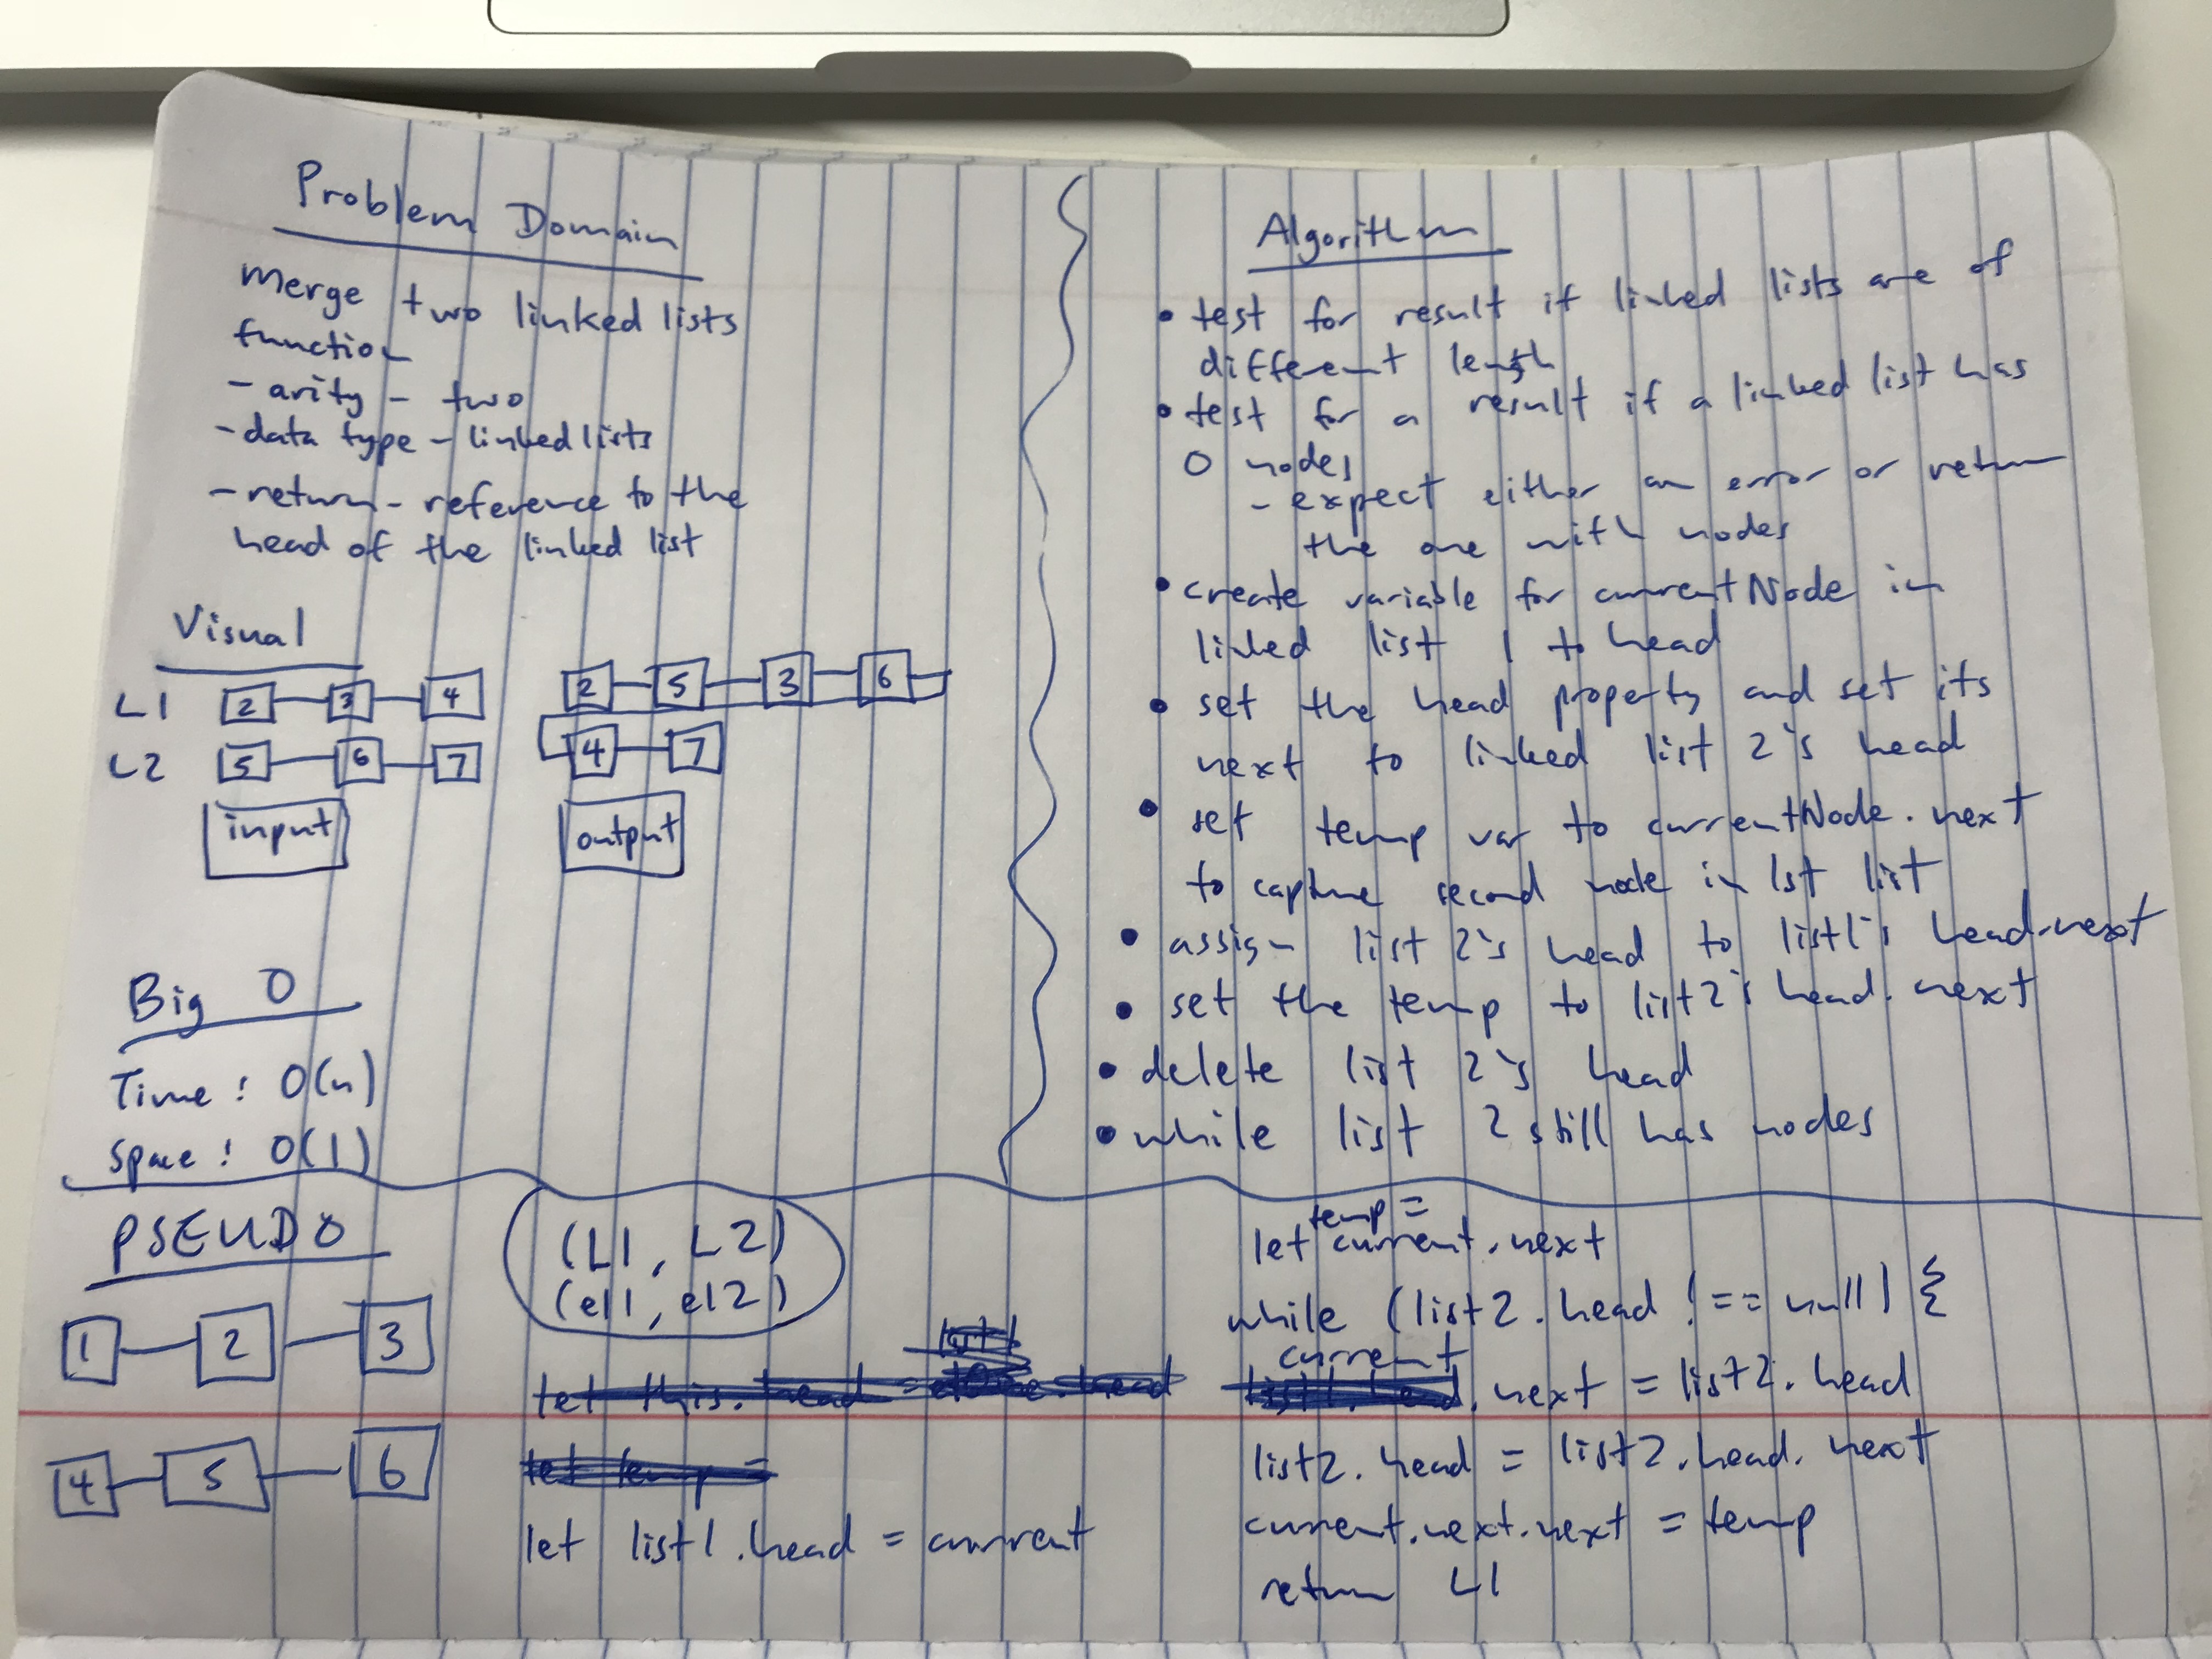 Problem Domain
Merge two linked lists
function
- arity - two
- data type - linked lists
- return - reference to the
head of the linked list
Visual
L1 2 3 4
L2 5 6 7
input
2 5 3 6
4 7
output
Big O
Time : O(n)
Space : O(1)
Algorithm
• test for result if linked lists are of
different length
• test for a result if a linked list has
0 nodes
- expect either an error or return
the one with nodes
• create variable for currentNode in
linked list 1 to head
• set the head property and set its
next to linked list 2's head
• set temp var to currentNode.next
to capture second node in 1st list
• assign list 2's head to list1's head.next
• set the temp to list2's head.next
• delete list 2's head
• while list 2 still has nodes
PSEUDO
1 2 3
4 5 6
(L1, L2)
(el1, el2)
let this.head =
let list1.head = current
let temp = current.next
while (list2.head !== null) {
current.next = list2.head
list2.head = list2.head.next
current.next.next = temp
return L1